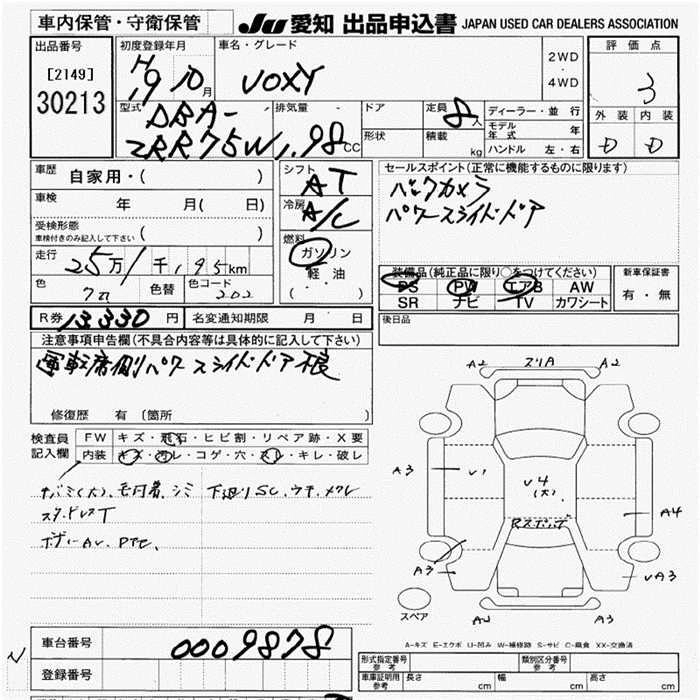 車内保管・守衛保管
JU 愛知 出品申込書 JAPAN USED CAR DEALERS ASSOCIATION
出品番号
[2149]
30213
初度登録年月
H19 10月
車名・グレード
VOXY
2WD
・
4WD
評価点
3
外装 内装
D D
型式
DBA-
ZRR75W
排気量
1.98CC
ドア
形状
定員 8人
積載 kg
ディーラー・並行
モデル年式 年
ハンドル 左・右
車歴
自家用・( )
車検
年 月( 日)
受検形態
車検付きのみ記入して下さい ( )
走行
25万 千,195km
色
クロ
色替
色コード
202
シフト
AT
冷房
A/C
燃料
ガソリン
軽油
( ・ )
セールスポイント(正常に機能するものに限ります)
バックカメラ
パワースライドドア
装備品(純正品に限り○をつけてください)
PS PW エアB AW
SR ナビ TV カワシート
新車保証書
有・無
R券 13,330円
名変通知期限 月 日
後日品
注意事項申告欄(不具合内容等は具体的に記入して下さい)
運転席側パワースライドドア不良
修復歴 有 〔箇所
検査員
記入欄
FW キズ・飛石・ヒビ割・リペア跡・X要
内装 キズ・汚レ・コゲ・穴・スレ・キレ・破レ
シミ 下廻りSC
スタッドレスT
A2 スリA A2
A3 V1
V4
(大)
A4
A3
VA3
A2 A3
スペア
A-キズ E-エクボ U-凹み W-補修跡 S-サビ C-腐食 XX-交換済
車台番号
0009878
登録番号
形式指定番号
参考
類別区分番号
参考
車庫証明用
参考
長さ cm 幅 cm 高さ cm